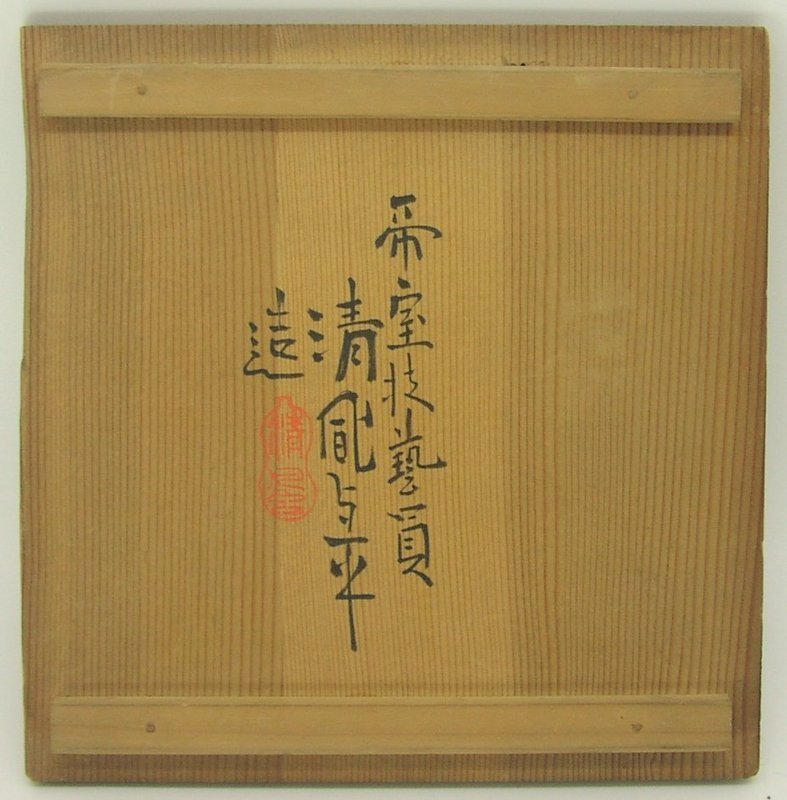 帝室技藝員
清風与平
造